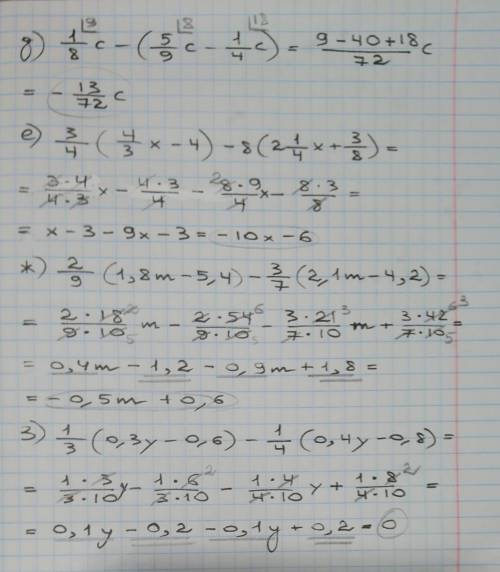 д) 1/8⌋9 c − (5/9⌋8 c − 1/4⌋18 c) = (9 − 40 + 18)/72 c
= − 13/72 c
е) 3/4 (4/3 x − 4) − 8(2 1/4 x + 3/8) =
= (3·4)/(4·3) x − (4·3)/4 − (8·9)/4 x − (8·3)/8 =
= x − 3 − 9x − 3 = −10x − 6
ж) 2/9 (1,8m − 5,4) − 3/7 (2,1m − 4,2) =
= (2·18)/(9·10) m − (2·54)/(9·10) − (3·21)/(7·10) m + (3·42)/(7·10) =
= 0,4m − 1,2 − 0,9m + 1,8 =
= −0,5m + 0,6
з) 1/3 (0,3y − 0,6) − 1/4 (0,4y − 0,8) =
= (1·3)/(3·10) y − (1·6)/(3·10) − (1·4)/(4·10) y + (1·8)/(4·10) =
= 0,1y − 0,2 − 0,1y + 0,2 = 0